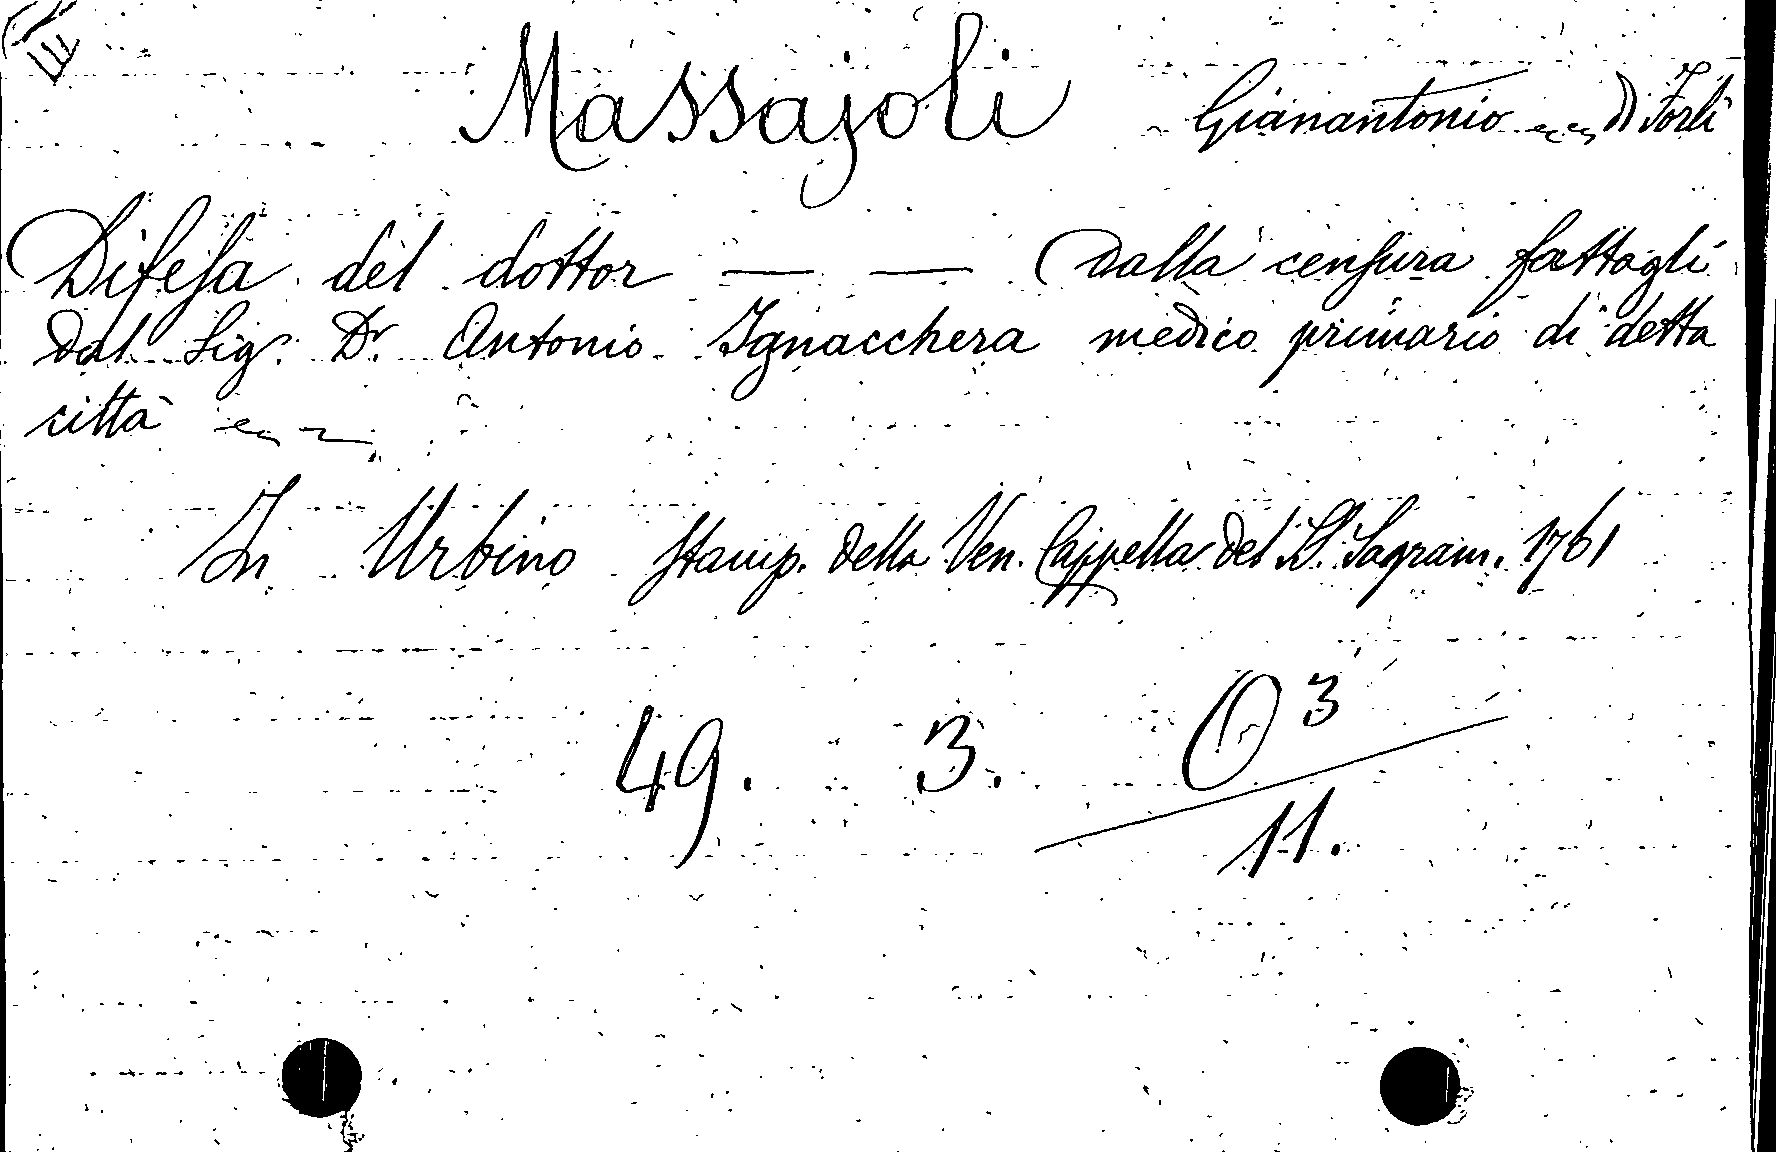 Massajoli Gianantonio di Forlì
Difesa del dottor — — Dalla censura fattagli
dal Sig. Dr. Antonio Ignacchera medico primario di detta
città
In Urbino Stamp. della Ven. Cappella del SS. Sagram. 1761
49. 3. O 3
11.